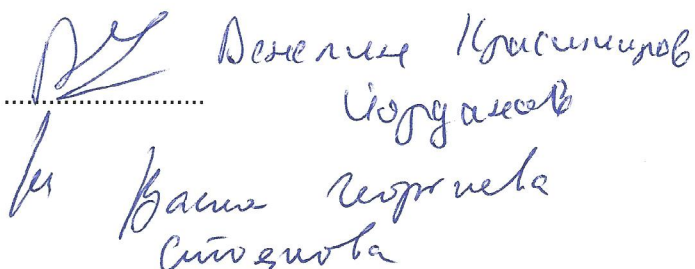 Венелин Красимиров
Йорданов
Васка Георгиева
Стоянова